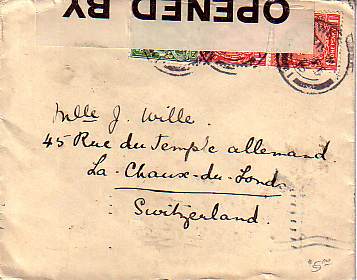 OPENED BY
Mlle J. Wille.
45 Rue du Temple allemand
La-Chaux-du-Fonds
Switzerland.